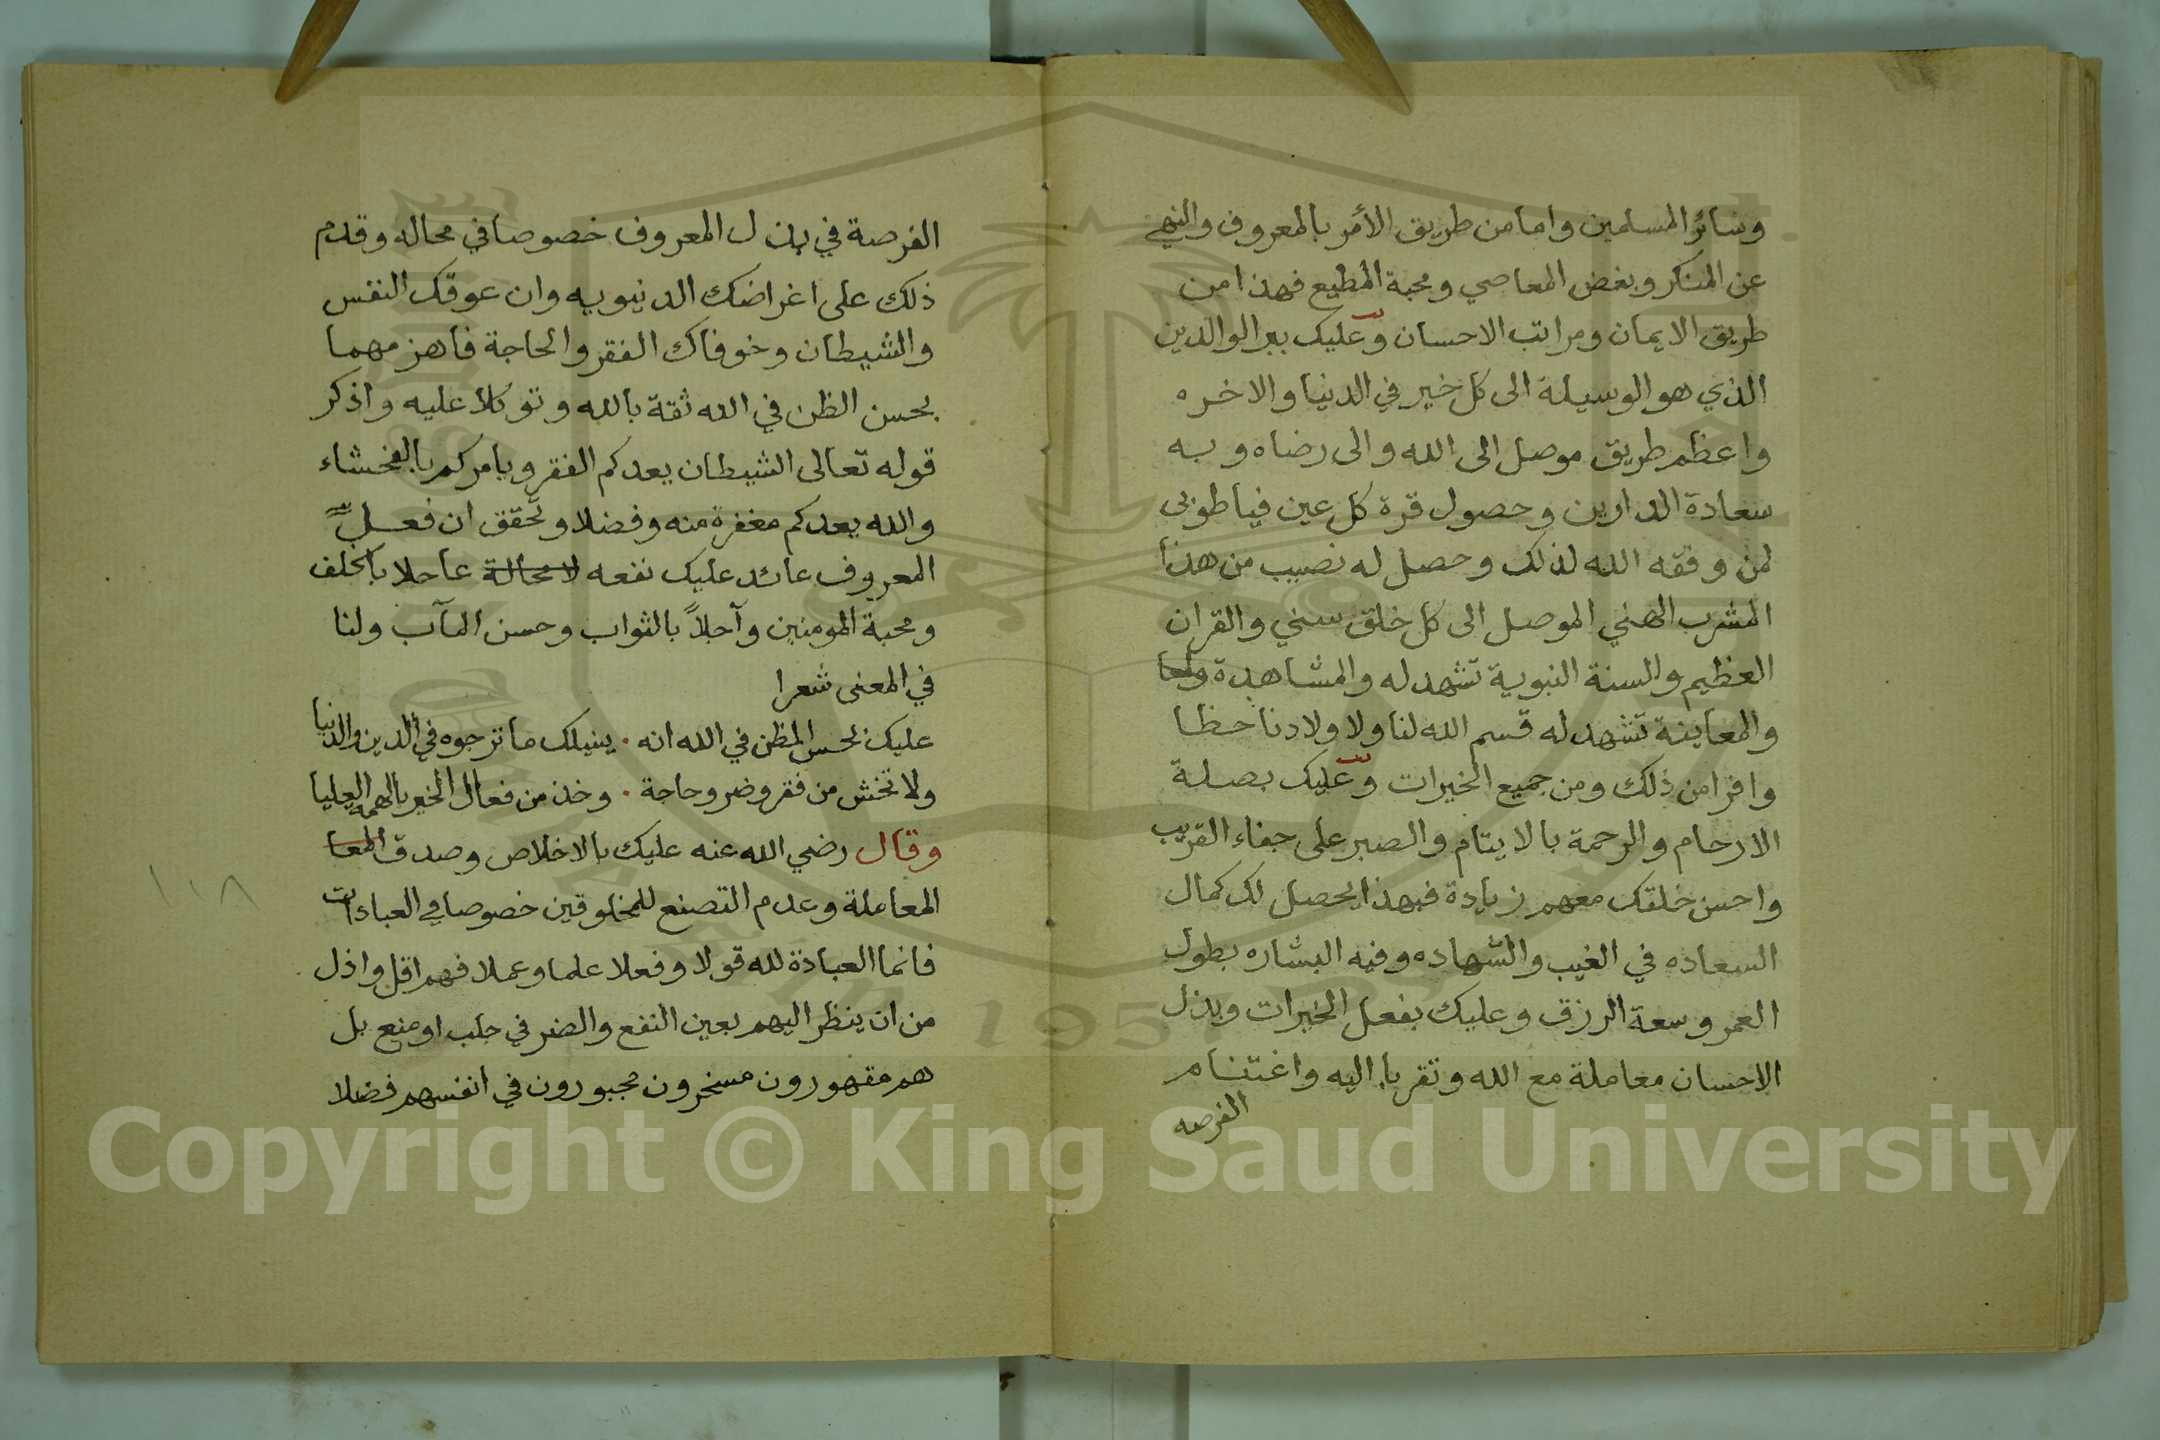 وسائر المسلمين واما من طريق الأمر بالمعروف والنهي
عن المنكر وبغض المعاصي ومحبة المطيع فهذا من
طريق الايمان ومراتب الاحسان وعليك ببر الوالدين
الذي هو الوسيلة الى كل خير في الدنيا والاخره
واعظم طريق موصل الى الله والى رضاه وبه
سعادة الدارين وحصول قرة كل عين فيا طوبى
لمن وفقه الله لذلك وحصل له نصيب من هذا
المشرب الهني الموصل الى كل خلق سني والقران
العظيم والسنة النبوية تشهد له والمشاهدة ولعا
والمعاينة تشهد له قسم الله لنا ولاولادنا حظا
وافرا من ذلك ومن جميع الخيرات وعليك بصلة
الارحام والرحمة بالايتام والصبر على جفاء القريب
واحسن خلقك معهم زيادة فبهذا يحصل لك كمال
السعاده في الغيب والشهاده وفيه البشاره بطول
العمر وسعة الرزق وعليك بفعل الخيرات وبذل
الاحسان معاملة مع الله وتقربا اليه واغتنام
الفرصه
الفرصة في بذل المعروف خصوصا في محاله وقدم
ذلك على اغراضك الدنيويه وان عوقك النفس
والشيطان وخوفاك الفقر والحاجة فاهزمهما
بحسن الظن في الله ثقة بالله وتوكلا عليه واذكر
قوله تعالى الشيطان يعدكم الفقر ويامركم بالفحشاء
والله يعدكم مغفرة منه وفضلا وتحقق ان فعل
المعروف عائد عليك نفعه لا محالة عاجلا بالخلف
ومحبة المومنين وآجلاً بالثواب وحسن المآب ولنا
في المعنى شعرا
عليك بحسن الظن في الله انه . ينيلك ما ترجوه في الدين والدنيا
ولا تخش من فقر وضر وحاجة . وخذ من فعال الخير بالهمة العليا
وقال رضي الله عنه عليك بالاخلاص وصدق المعا
المعاملة وعدم التصنع للمخلوقين خصوصا في العبادات
فانما العبادة لله قولا وفعلا علما وعملا فهم اقل واذل
من ان ينظر اليهم بعين النفع والضر في جلب او منع بل
هم مقهورون مسخرون مجبورون في انفسهم فضلا
١١٨
1957
Copyright © King Saud University